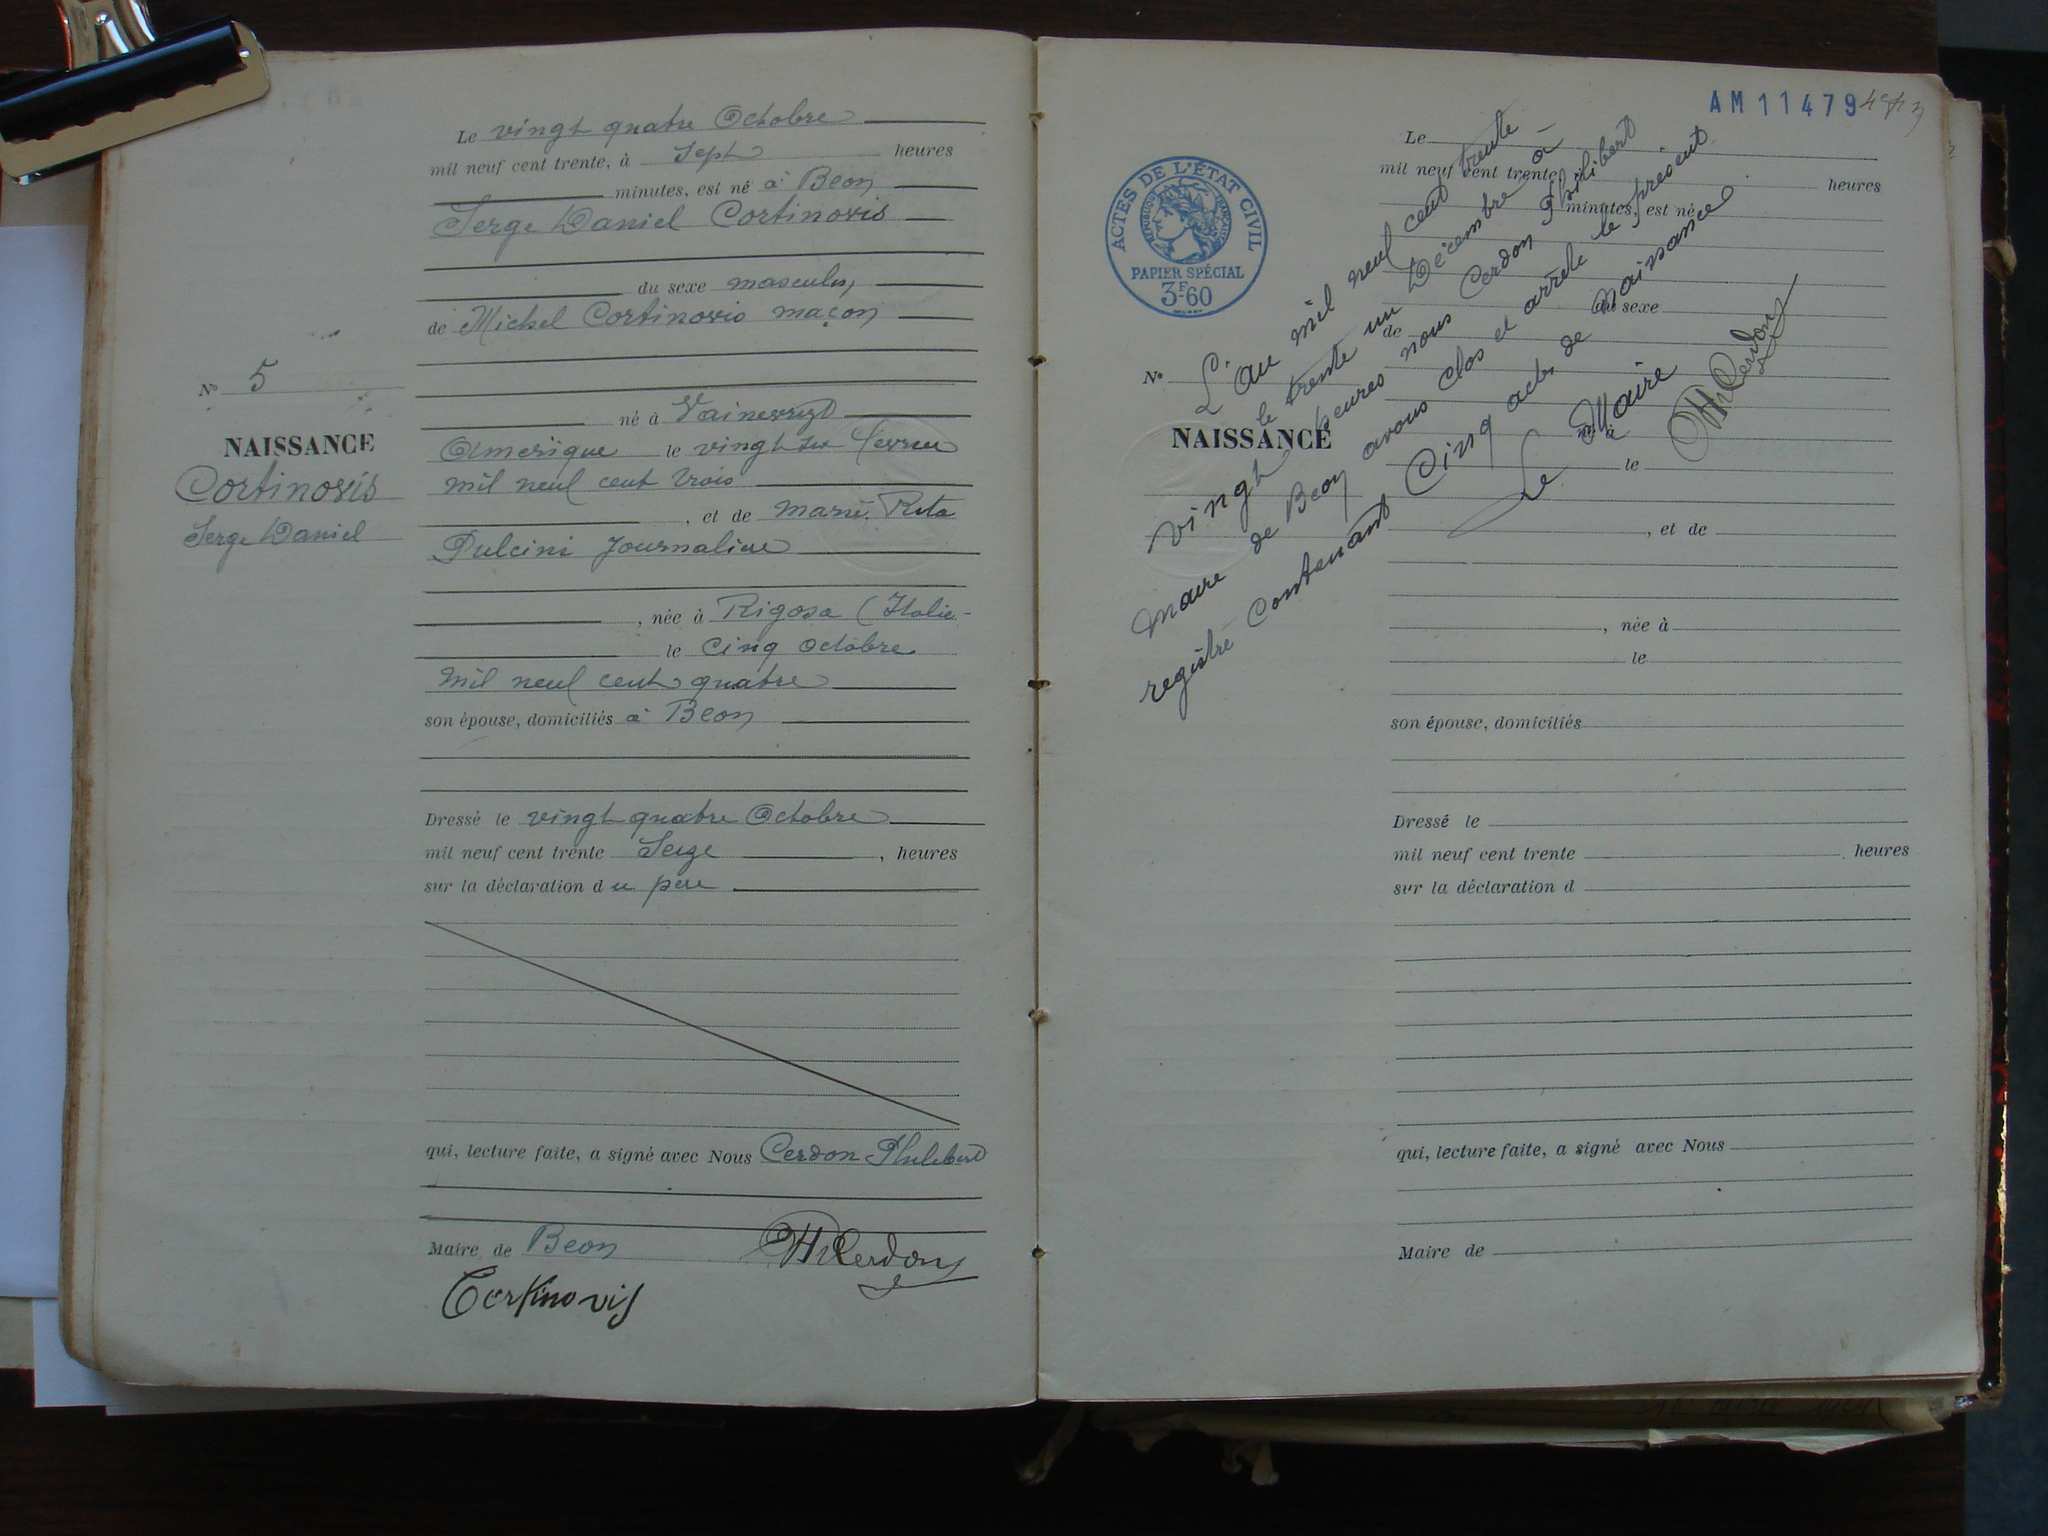 Le vingt quatre Octobre
mil neuf cent trente, à Sept heures
minutes, est né à Beon
Serge Daniel Cortinovis
du sexe masculin
de Michel Cortinovis maçon
né à
Amérique le vingt
mil neuf cent trois
, et de Marie. Rita
Pulcini Journaliere
, née à Rigosa (Italie-
le cinq octobre
mil neuf cent quatre
son épouse, domiciliés à Beon
Dressé le vingt quatre Octobre
mil neuf cent trente Seize , heures
sur la déclaration du père
qui, lecture faite, a signé avec Nous Cerdon Philibert
Maire de Beon
PhCerdon
Cortinovis
No 5
NAISSANCE
Cortinovis
Serge Daniel
AM 11479
ACTES DE L'ÉTAT CIVIL
RÉPUBLIQUE FRANÇAISE
PAPIER SPÉCIAL
3F60
Le
mil neuf cent trente, à heures
minutes, est né
du sexe
de
né à
le
, et de
, née à
le
son épouse, domiciliés
Dressé le
mil neuf cent trente , heures
sur la déclaration d
qui, lecture faite, a signé avec Nous
Maire de
No
NAISSANCE
L'an mil neuf cent trente
le trente un Décembre à
vingt heures nous Cerdon Philibert
maire de Beon avons clos et arrêté le présent
registre contenant Cinq actes de naissance
Le Maire
PhCerdon